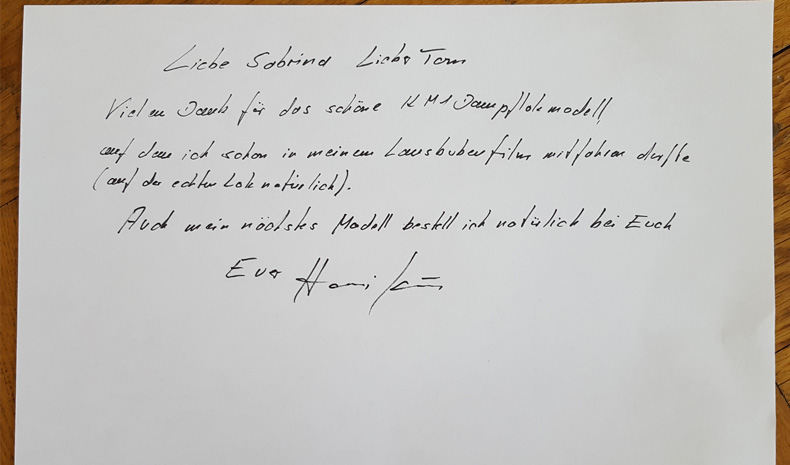 Liebe Sabrina Lieber Tom
Vielen Dank für das schöne KM1 Dampflokmodell,
auf dem ich schon in meinem Lausbubenfilm mitfahren durfte
(auf der echten Lok natürlich).
Auch mein nächstes Modell bestell ich natürlich bei Euch
Euer